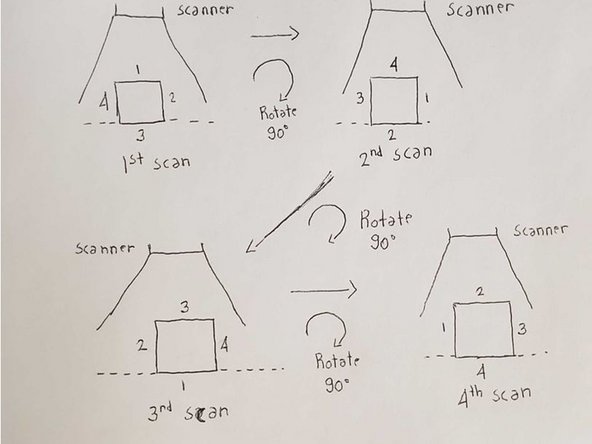 Scanner
Scanner
1
4
2
3
Rotate
90°
4
3
1
2
1st scan
2nd scan
Rotate
90°
Scanner
Scanner
3
2
4
1
Rotate
90°
2
1
3
4
3rd scan
4th scan